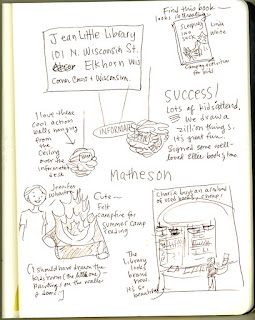 Jean Little Library
101 N. Wisconsin St.
Elkhorn Wis
Corner Court & Wisconsin.
Find this book -
looks interesting
Sleeping
in a
sack
Linda
White
Camping activities
for kids
I love these
cool action
walls hanging
from
the
ceiling
over the
information
desk
INFORMATION
SUCCESS!
Lots of kids attend.
We draw a
zillion things.
It's great fun.
Signed some well-
loved Ellie books, too.
Matheson
Jennifer
Cute -
Felt
campfire for
summer camp
reading
(I should have drawn the
kids' room (the little one) -
Paintings on the walls
& doors!)
The
Library
looks
brand
new.
It's so
beautiful
Charlie buys an armload
of used books, cheap!